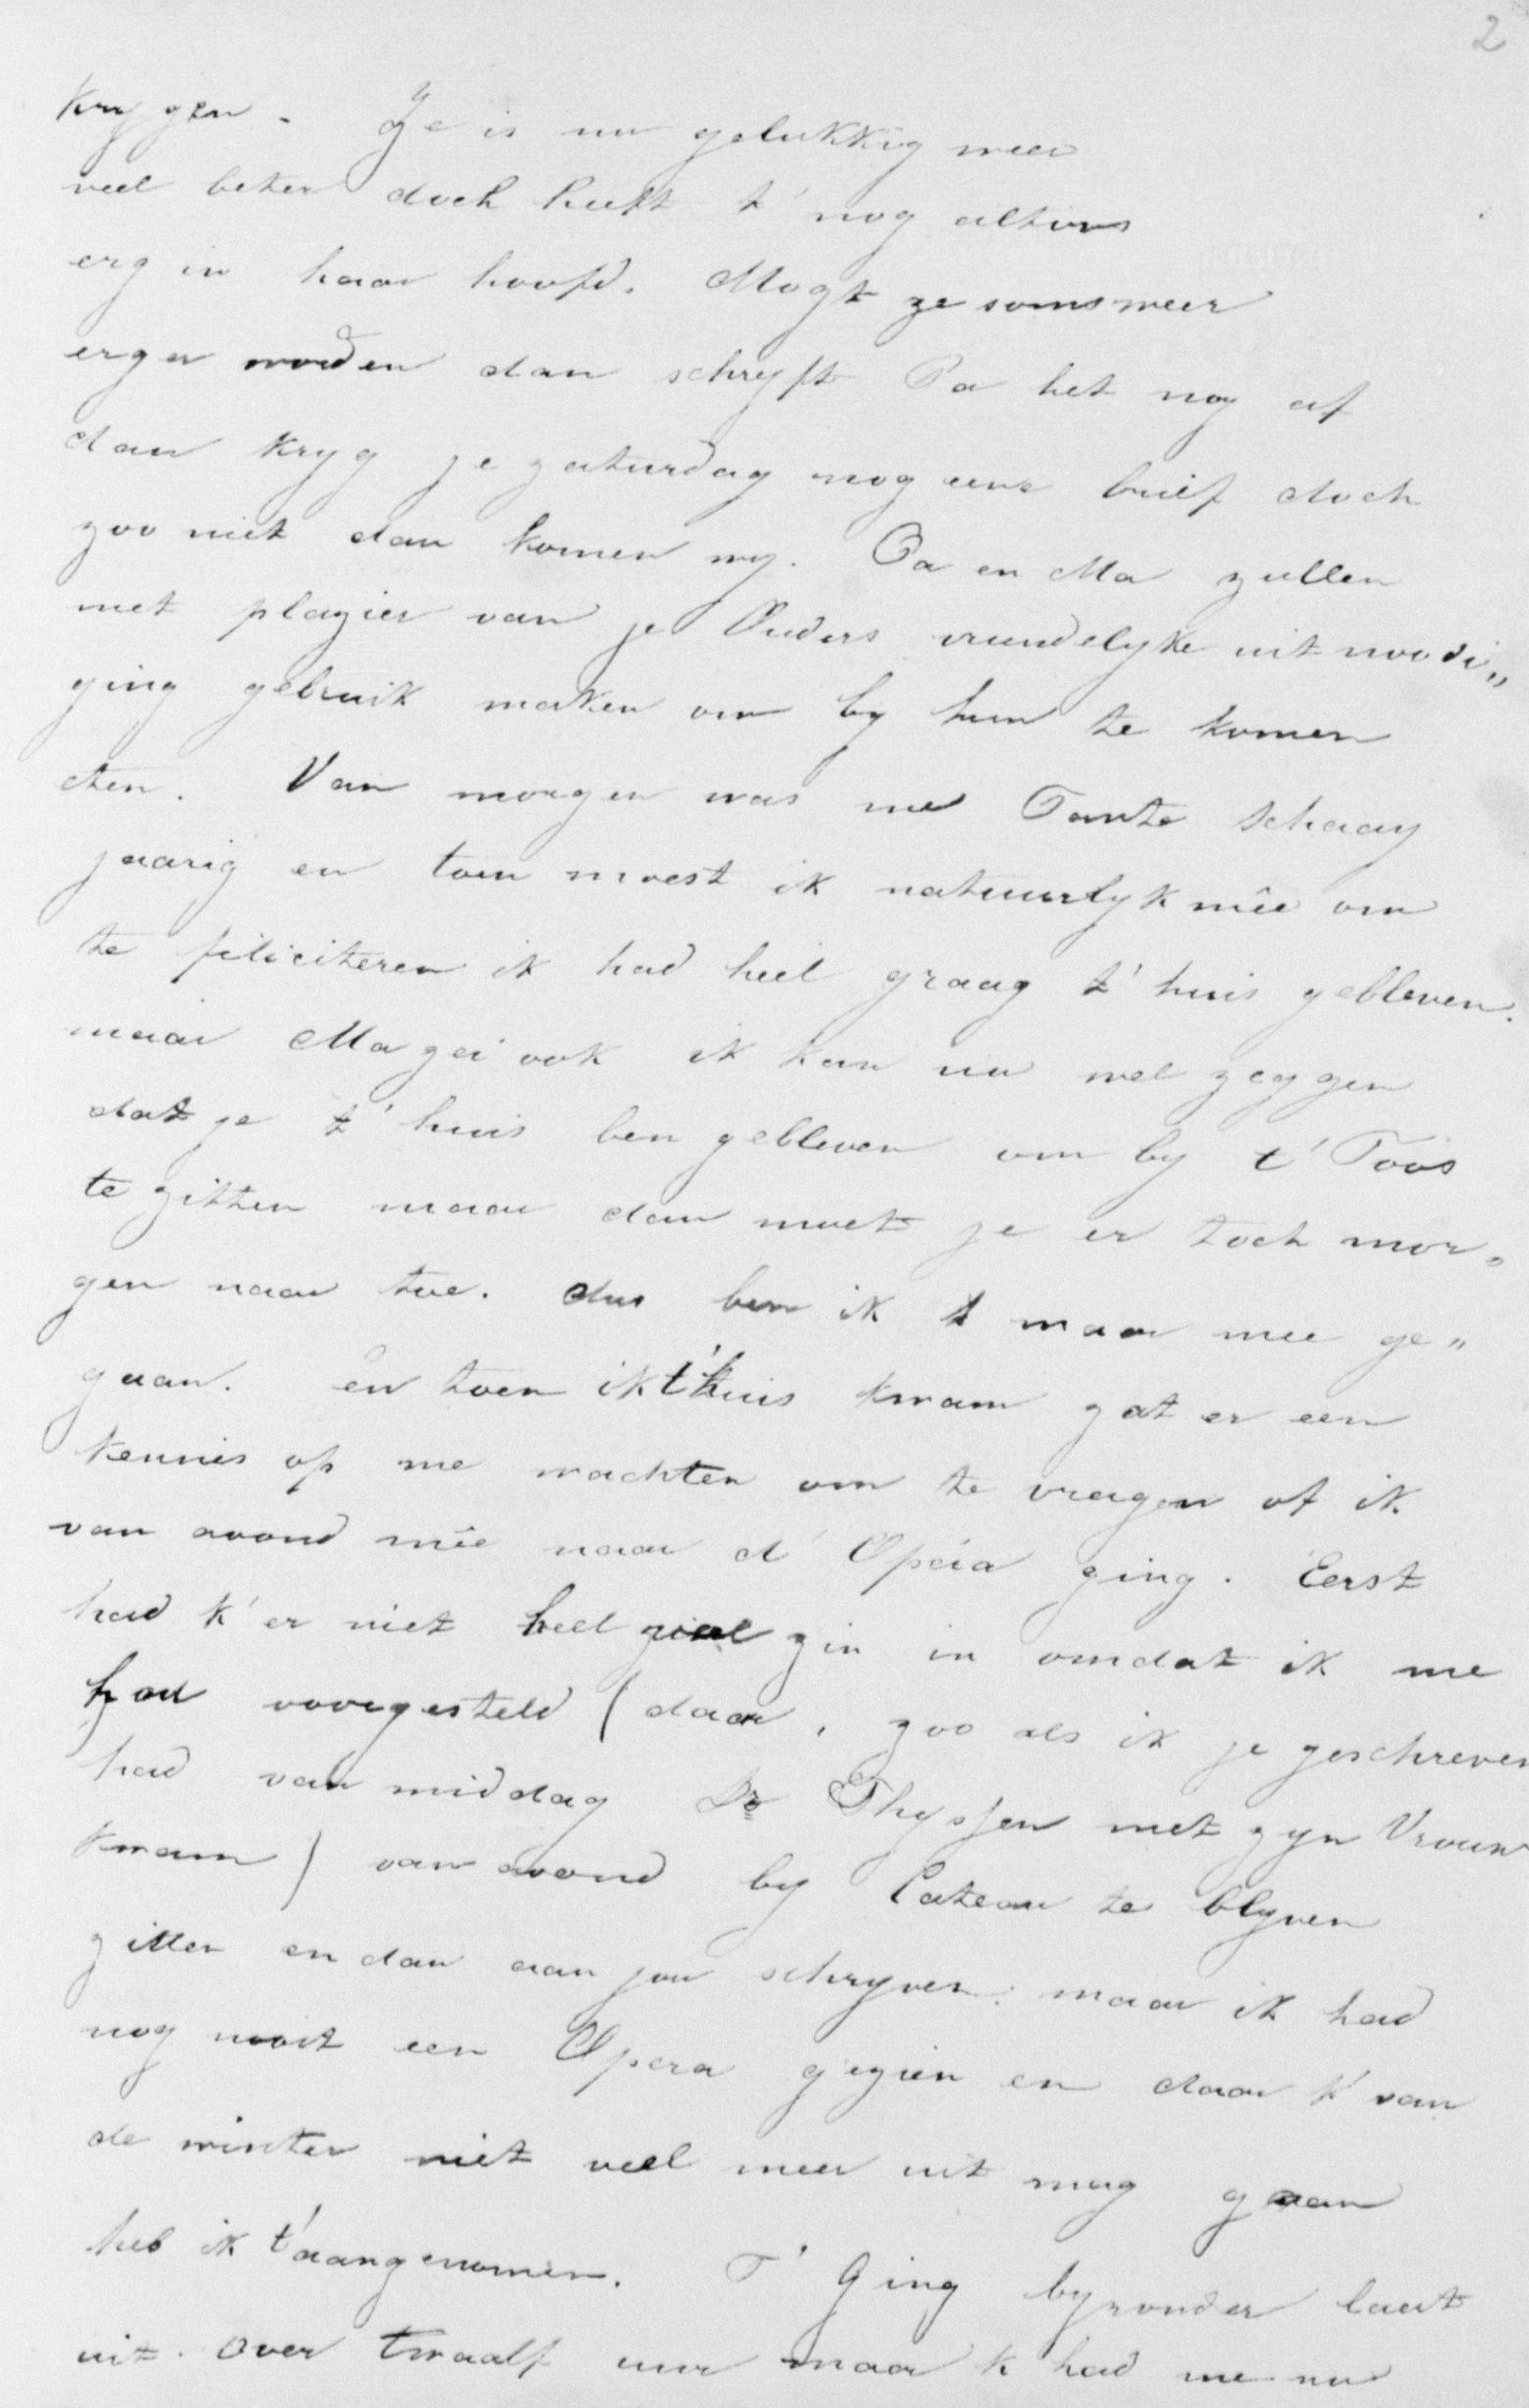 2
krygen. Ze is nu gelukkig weer
veel beter doch heeft t' nog altyd
erg in haar hoofd. Mogt ze soms weer
erger worden dan schryft Pa het nog af
dan kryg je zaturdag nog eene brief doch
zoo niet dan komen wy. Pa en Ma zullen
met plazier van je Ouders vriendelyke uitnoodi„
ging gebruik maken om by hun te komen
eten. Van morgen was me Tante Schaay
jaarig en toen moest ik natuurlyk mêe om
te feliciteren ik had heel graag t' huis gebleven.
maar Ma zei ook ik kan nu wel zeggen
dat je t' huis ben gebleven om by t' Toos
te zitten maar dan moet je er toch mor„
gen naar toe. dus ben ik maar mee ge„
gaan. en toen ik t'huis kwam zat er een
kennis op me wachten om te vragen of ik
van avond mêe naar d' Opéra ging. Eerst
had k' er niet heel veel zin in omdat ik me
had voorgesteld (daar, zoo als ik je geschreven
had van middag Dr Thyssen met zyn Vrouw
kwam) van avond by Cateau te blyven
zitten en dan aan jou schryven. maar ik had
nog nooit een Opera gezien en daar k' van
de winter niet veel meer uit mag gaan
heb ik t'aangenomen. T' Ging byzonder laat
uit. Over twaalf uur maar k had me nu